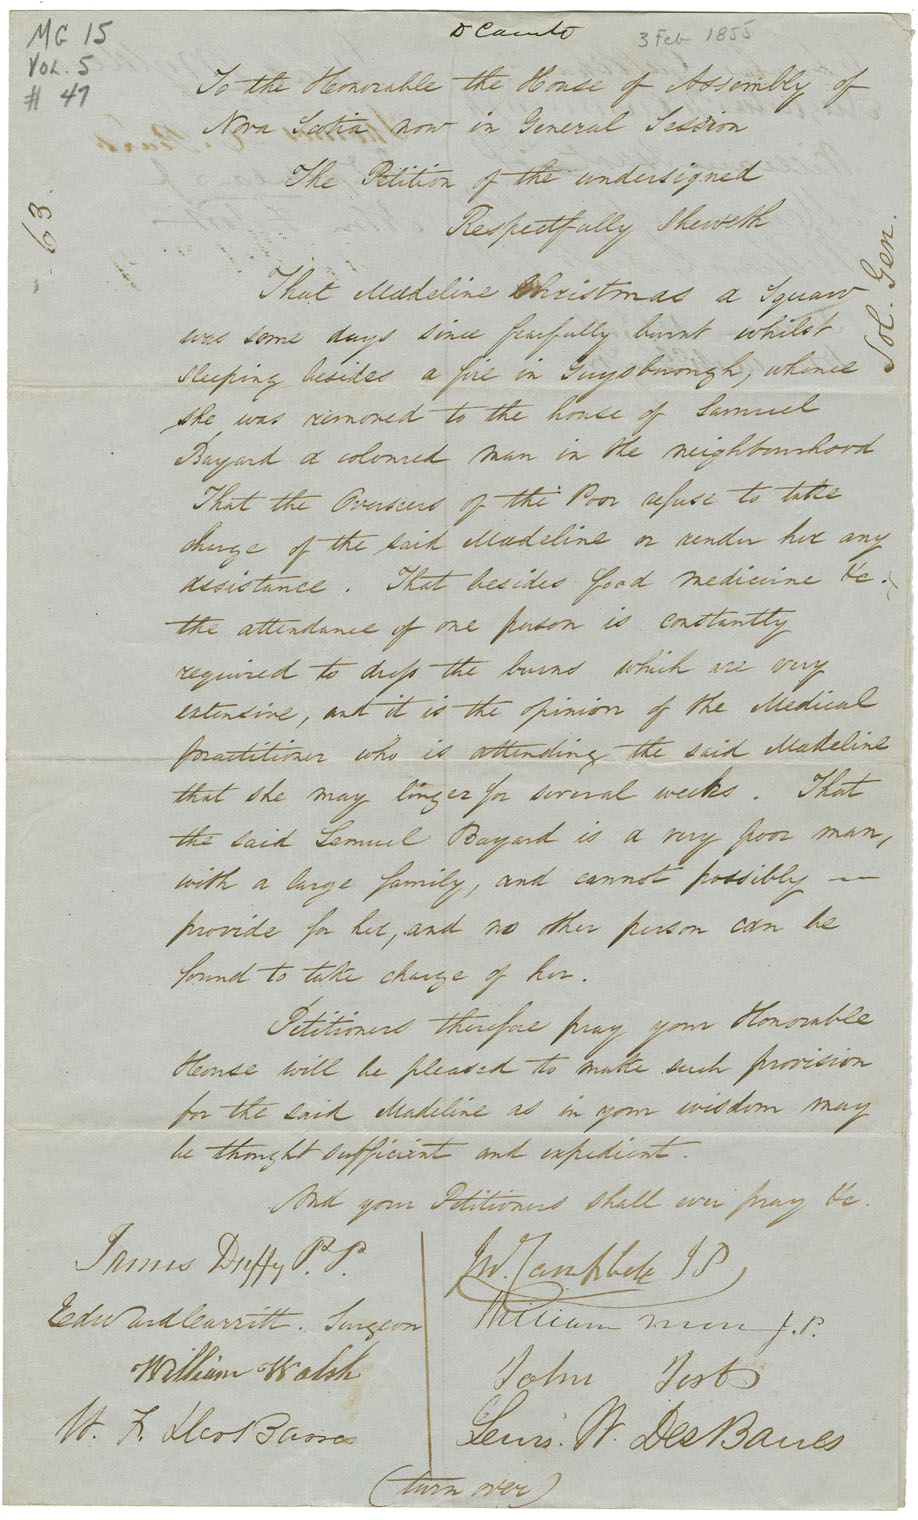 MG 15
Vol. 5
# 47
3 Feb 1855
To the Honorable the House of Assembly of
Nova Scotia now in General Session
The Petition of the undersigned
Respectfully Sheweth
63
Sol. Gen.
That Madeline Christmas a Squaw
was some days since fearfully burnt whilst
sleeping besides a fire in Guysborough, whence
she was removed to the house of Samuel
Bayard a coloured man in the neighbourhood
That the Overseers of the Poor refuse to take
charge of the said Madeline or render her any
assistance. That besides food medicine &c.
the attendance of one person is constantly
required to dress the burns which are very
extensive, and it is the opinion of the Medical
Practitioner who is attending the said Madeline
that she may linger for several weeks. That
the said Samuel Bayard is a very poor man,
with a large family, and cannot possibly —
provide for her, and no other person can be
found to take charge of her.
Petitioners therefore pray your Honorable
House will be pleased to make such provision
for the said Madeline as in your wisdom may
be thought sufficient and expedient.
And your Petitioners shall ever pray &c.
James Duffy P.P.
Edward Carritt. Surgeon
William Walsh
W. F. DesBarres
Jno. Campbell J P
William J.P.
John
Lewis. W. DesBarres
(turn over)